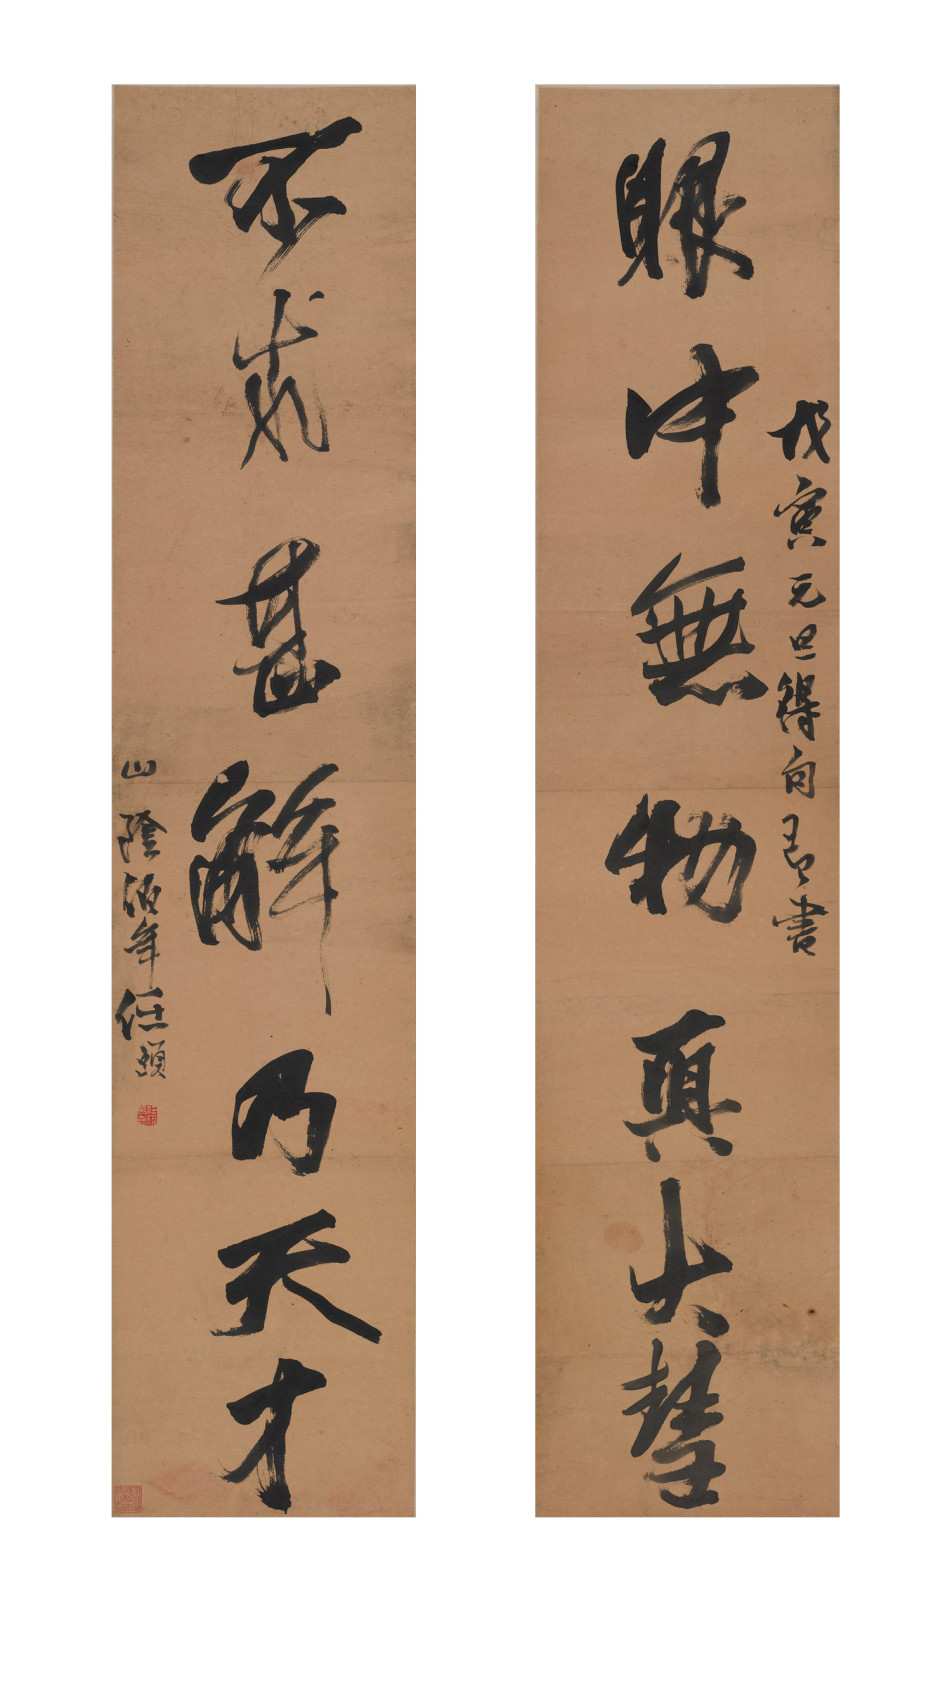 戊寅元旦得句即書
眼中無物真大慧
不求甚解乃天才
山陰伯年任頤